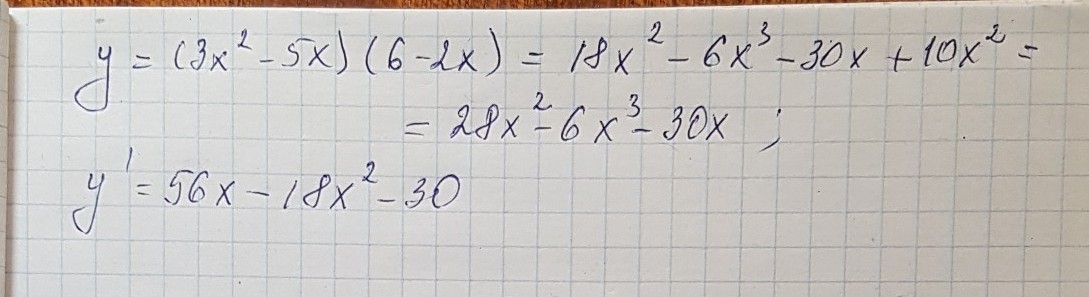 y = (3x² - 5x)(6 - 2x) = 18x² - 6x³ - 30x + 10x² =
= 28x² - 6x³ - 30x ;
y' = 56x - 18x² - 30